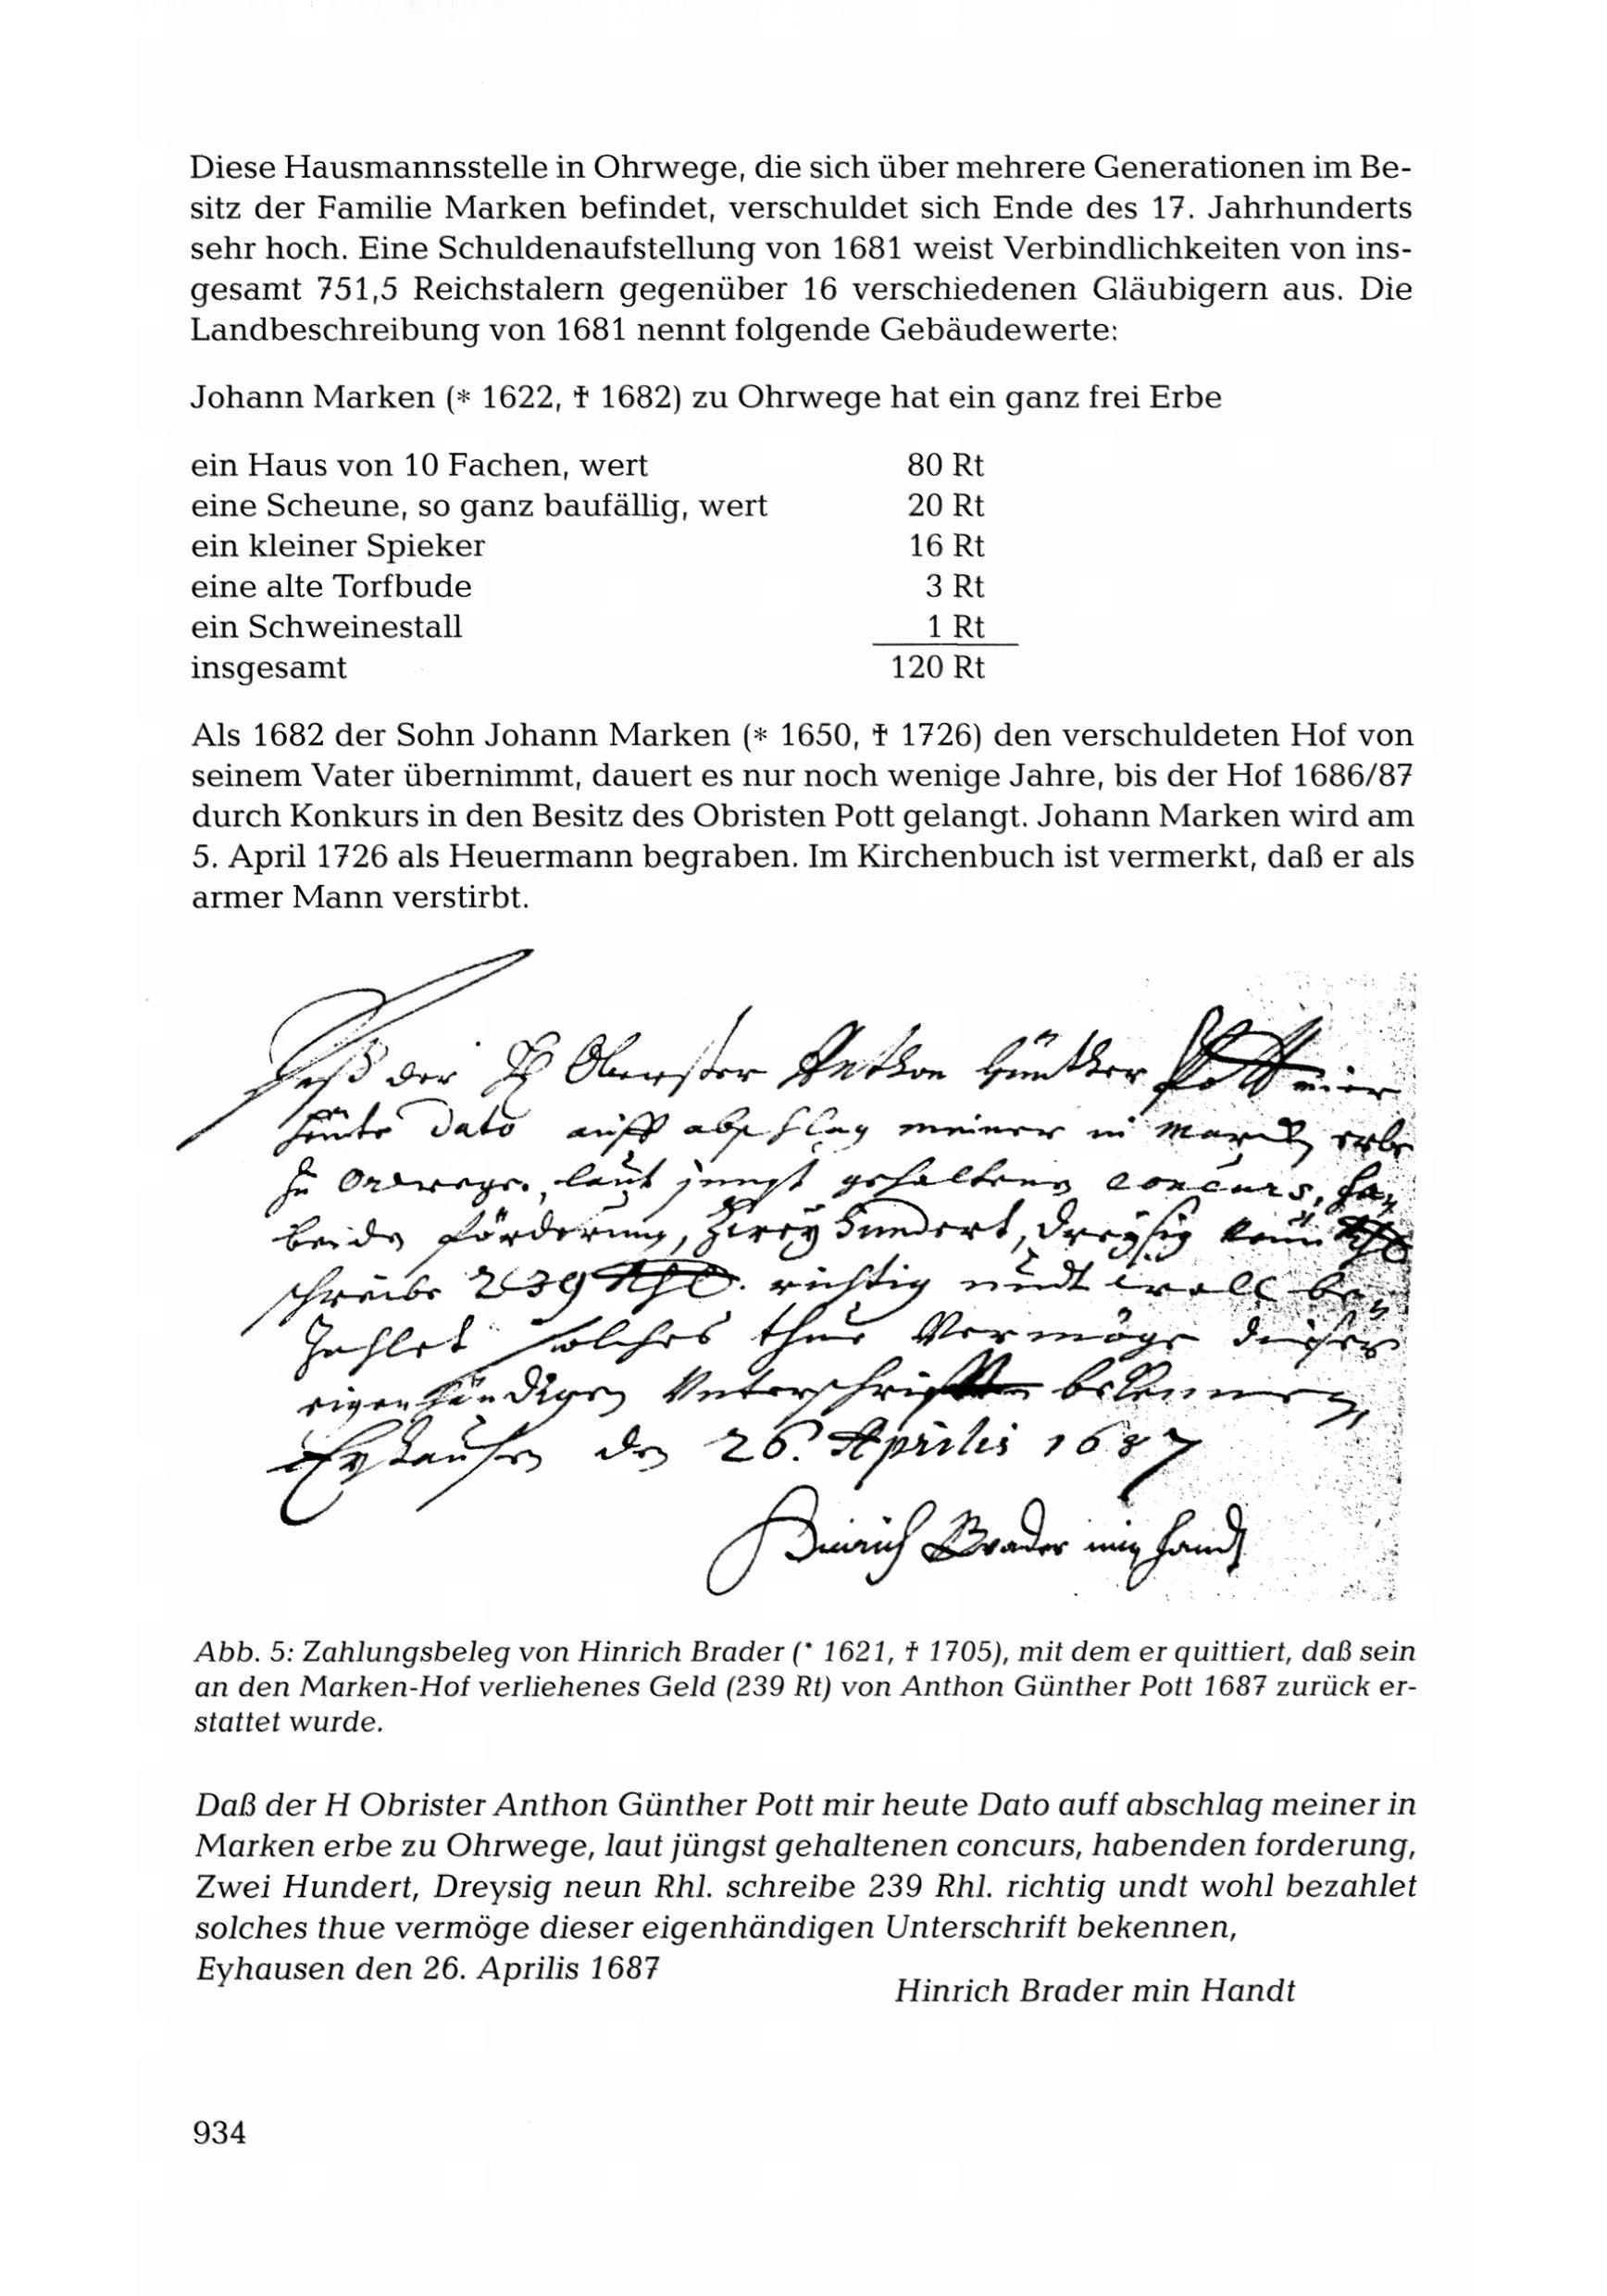 Diese Hausmannsstelle in Ohrwege, die sich über mehrere Generationen im Be-
sitz der Familie Marken befindet, verschuldet sich Ende des 17. Jahrhunderts
sehr hoch. Eine Schuldenaufstellung von 1681 weist Verbindlichkeiten von ins-
gesamt 751,5 Reichstalern gegenüber 16 verschiedenen Gläubigern aus. Die
Landbeschreibung von 1681 nennt folgende Gebäudewerte:
Johann Marken (* 1622, ✝ 1682) zu Ohrwege hat ein ganz frei Erbe
ein Haus von 10 Fachen, wert 80 Rt
eine Scheune, so ganz baufällig, wert 20 Rt
ein kleiner Spieker 16 Rt
eine alte Torfbude 3 Rt
ein Schweinestall 1 Rt
insgesamt 120 Rt
Als 1682 der Sohn Johann Marken (* 1650, ✝ 1726) den verschuldeten Hof von
seinem Vater übernimmt, dauert es nur noch wenige Jahre, bis der Hof 1686/87
durch Konkurs in den Besitz des Obristen Pott gelangt. Johann Marken wird am
5. April 1726 als Heuermann begraben. Im Kirchenbuch ist vermerkt, daß er als
armer Mann verstirbt.
Daß der H Oberster Anthon Günther Pott mier
heute Dato auff abschlag meiner in Marken erbe
zu Orwege, laut jungst gehaltenen concurs, ha-
bende förderung, Zwey Hundert, Dreysig neun Rthl
schreibe 239 Rthl. richtig undt woll be-
zahlet solches thue Vermöge dieser
eigenhändigen Unterschrift bekennen,
Eyhausen den 26. Aprilis 1687
Hinrich Brader min handt
Abb. 5: Zahlungsbeleg von Hinrich Brader (* 1621, ✝ 1705), mit dem er quittiert, daß sein
an den Marken-Hof verliehenes Geld (239 Rt) von Anthon Günther Pott 1687 zurück er-
stattet wurde.
Daß der H Obrister Anthon Günther Pott mir heute Dato auff abschlag meiner in
Marken erbe zu Ohrwege, laut jüngst gehaltenen concurs, habenden forderung,
Zwei Hundert, Dreysig neun Rhl. schreibe 239 Rhl. richtig undt wohl bezahlet
solches thue vermöge dieser eigenhändigen Unterschrift bekennen,
Eyhausen den 26. Aprilis 1687
Hinrich Brader min Handt
934